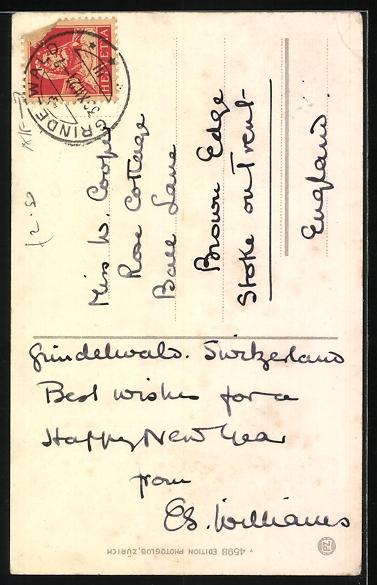 Grindelwald. Switzerland
Best wishes for a
Happy New Year
from
E.S. Williams
Miss W. Cooper
Rose Cottage
Ball Lane
Brown Edge
Stoke on Trent
England.
HELVETIA
GRINDELWALD
4598 EDITION PHOTOGLOB, ZÜRICH
PZ